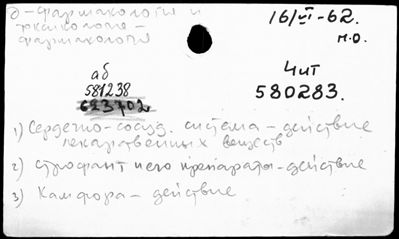 д-Фармакология и
токсикология -
фармакология
16/VI-62.
М.О.
аб
581238
623702
Чит
580283.
1) Сердечно-сосуд. система - действие
лекарственных веществ
2) строфант и его препараты - действие
3) Камфора - действие